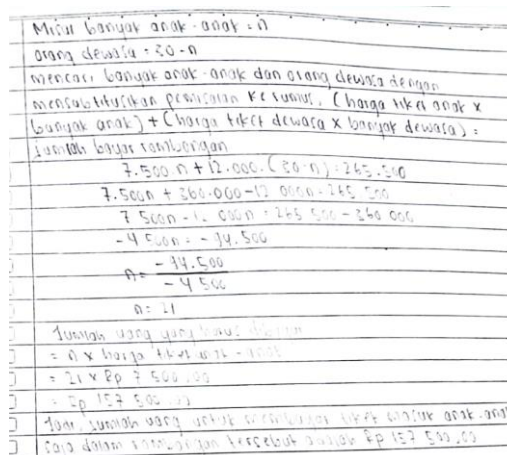 Misal banyak anak-anak = n
orang dewasa = 30-n
mencari banyak anak-anak dan orang dewasa dengan
mensubtitusikan pemisalan ke rumus. (harga tiket anak x
banyak anak) + (harga tiket dewasa x banyak dewasa) =
jumlah bayar rombongan
7.500 n + 12.000. (30-n) = 265.500
7.500n + 360.000-12 000n = 265 500
7 500n - 12 000n = 265 500 - 360 000
-4 500n = -94.500
n = -94.500
-4 500
n = 21
Jumlah uang yang harus
= n x harga tiket anak-anak
= 21 x Rp 7 500,00
= Rp 157 500,00
Jadi, jumlah uang untuk membayar tiket masuk anak-anak
saja dalam rombongan tersebut adalah Rp 157 500,00